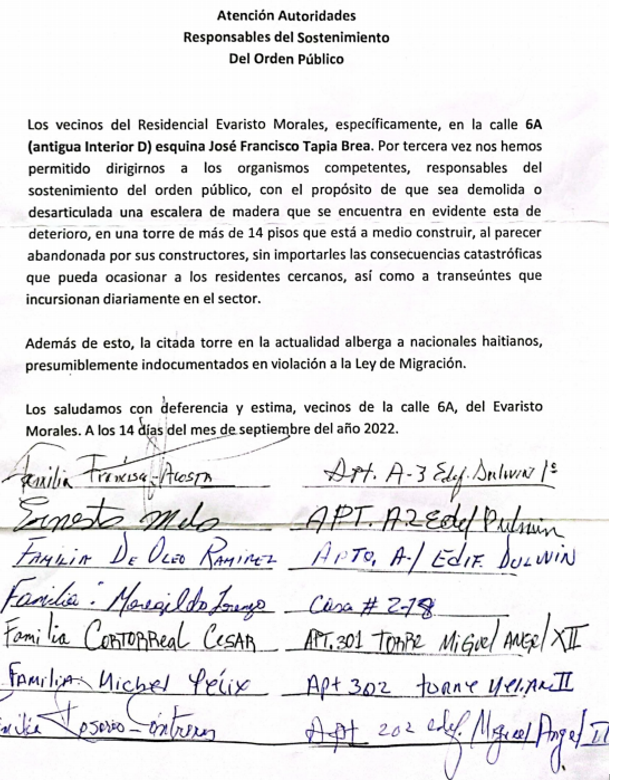 Atención Autoridades
Responsables del Sostenimiento
Del Orden Público
Los vecinos del Residencial Evaristo Morales, específicamente, en la calle 6A
(antigua Interior D) esquina José Francisco Tapia Brea. Por tercera vez nos hemos
permitido dirigirnos a los organismos competentes, responsables del
sostenimiento del orden público, con el propósito de que sea demolida o
desarticulada una escalera de madera que se encuentra en evidente esta de
deterioro, en una torre de más de 14 pisos que está a medio construir, al parecer
abandonada por sus constructores, sin importarles las consecuencias catastróficas
que pueda ocasionar a los residentes cercanos, así como a transeúntes que
incursionan diariamente en el sector.
Además de esto, la citada torre en la actualidad alberga a nacionales haitianos,
presumiblemente indocumentados en violación a la Ley de Migración.
Los saludamos con deferencia y estima, vecinos de la calle 6A, del Evaristo
Morales. A los 14 días del mes de septiembre del año 2022.
Familia Acosta Apt. A-3 Edf.
Ernesto Melo APT. A-2 Edef
FAMILIA DE OLEO RAMIREZ APTO, A-1 EDIF. DULWIN
Familia: Casa # 2-78
Familia CORTORREAL CESAR APT. 301 TORRE MIGUEL ANGEL XII
FAMILIA: Michel Félix Apt 302 torre
Rosario - Contreras Apt 202 edf. Miguel Angel II